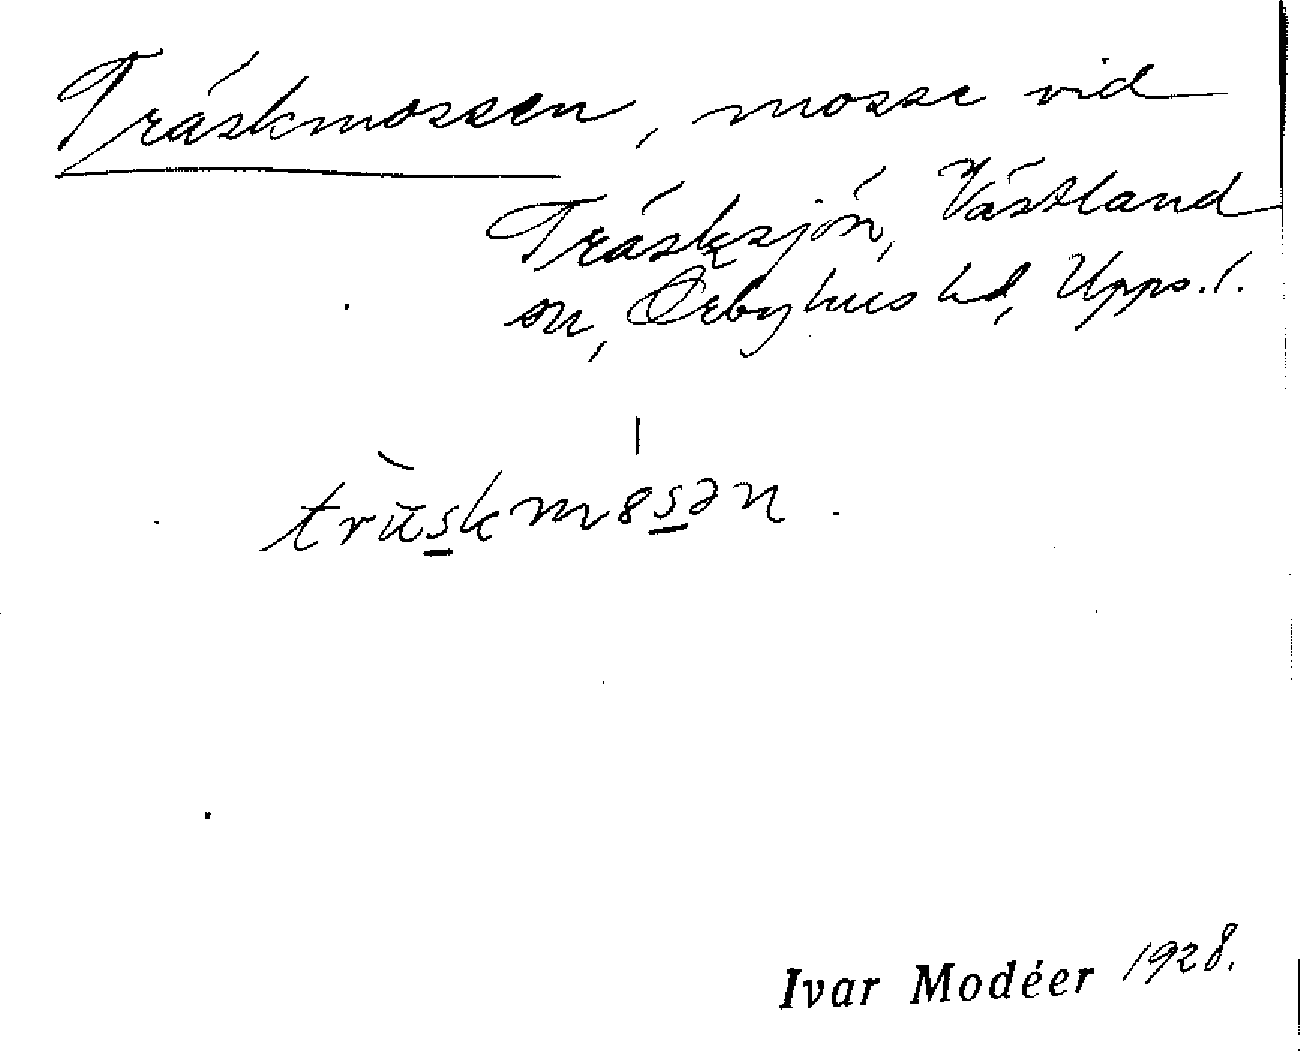 Träskmossen, mosse vid
Träsksjön, Västland
sn, Örbyhus hd, Upps. l.
träskmosən.
Ivar Modéer 1928.